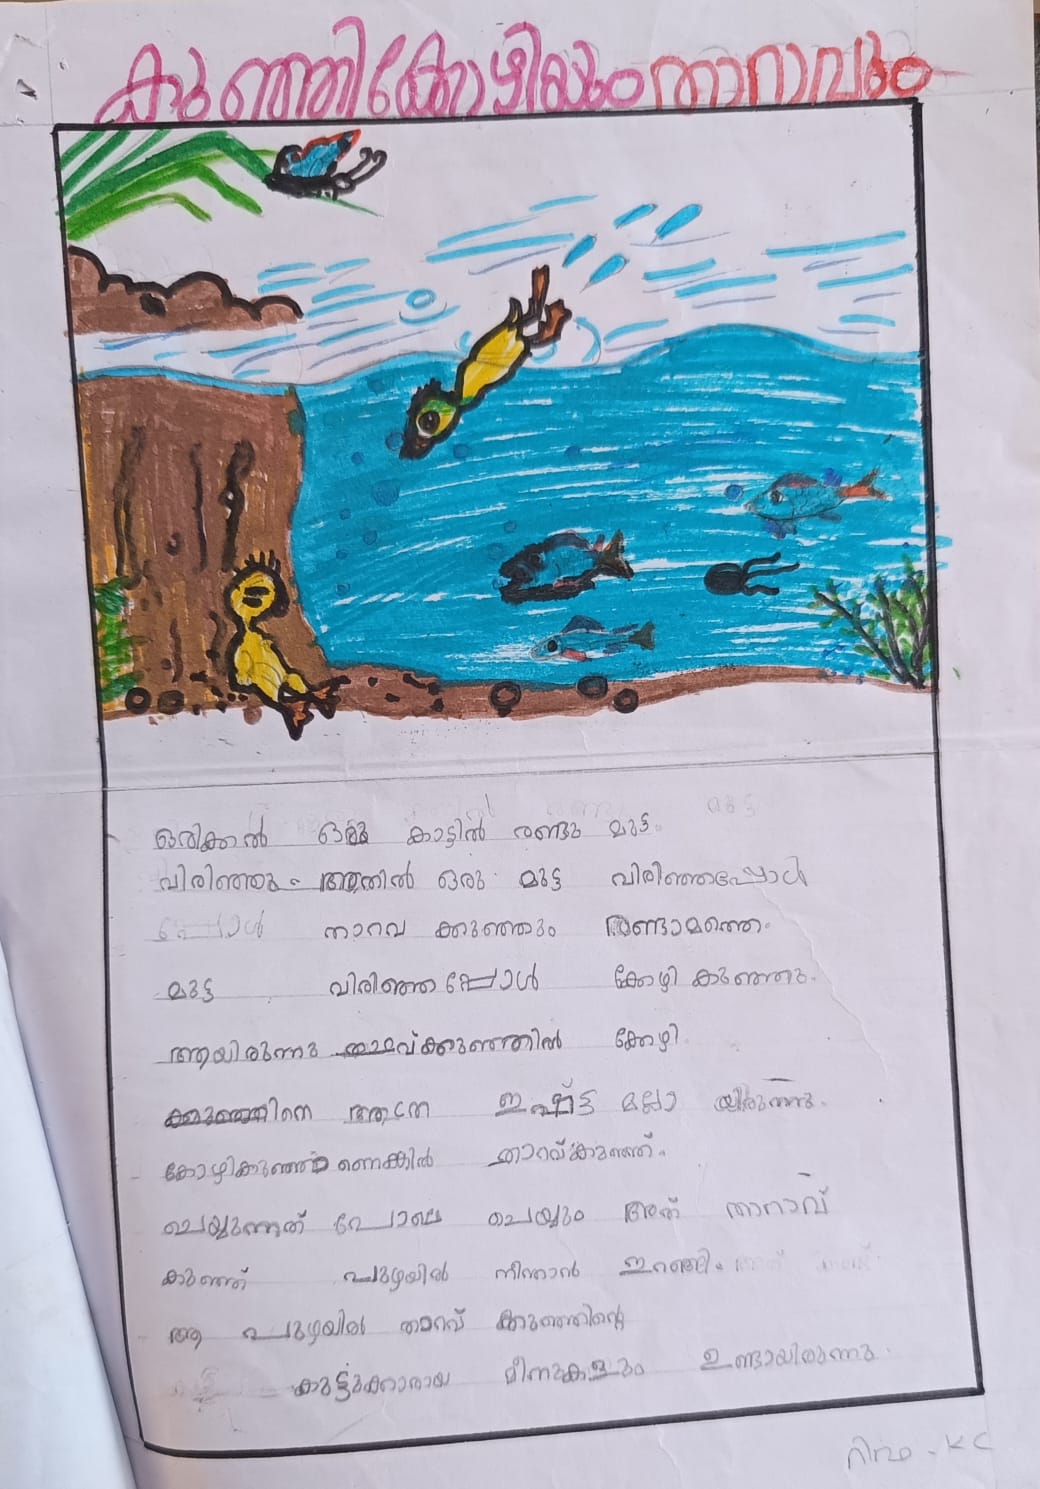 കുഞ്ഞിക്കോഴിയും താറാവും
ഒരിക്കൽ ഒരു കാട്ടിൽ രണ്ടു മുട്ട
വിരിഞ്ഞു. അതിൽ ഒരു മുട്ട വിരിഞ്ഞപ്പോൾ
താറവ ക്കുഞ്ഞും രണ്ടാമത്തെ.
മുട്ട വിരിഞ്ഞ പ്പോൾ കോഴി കുഞ്ഞു.
ആയിരുന്നു താറവ്ക്കുഞ്ഞിൽ കോഴി
ക്കുഞ്ഞിനെ ഇഷ്ട്ട മല്ലാ യിരുന്നു.
കോഴികുഞ്ഞാണെങ്കിൽ താറവ്കുഞ്ഞ്.
ചെയ്യുന്നത് പോലെ ചെയ്യും അത് താറാവ്
കുഞ്ഞ് പുഴയിൽ നീന്താൻ ഇറങ്ങി.
ആ പുഴയിൽ താറവ് ക്കുഞ്ഞിന്റെ
കൂട്ടുക്കാരായ മീനുകളും ഉണ്ടായിരുന്നു.